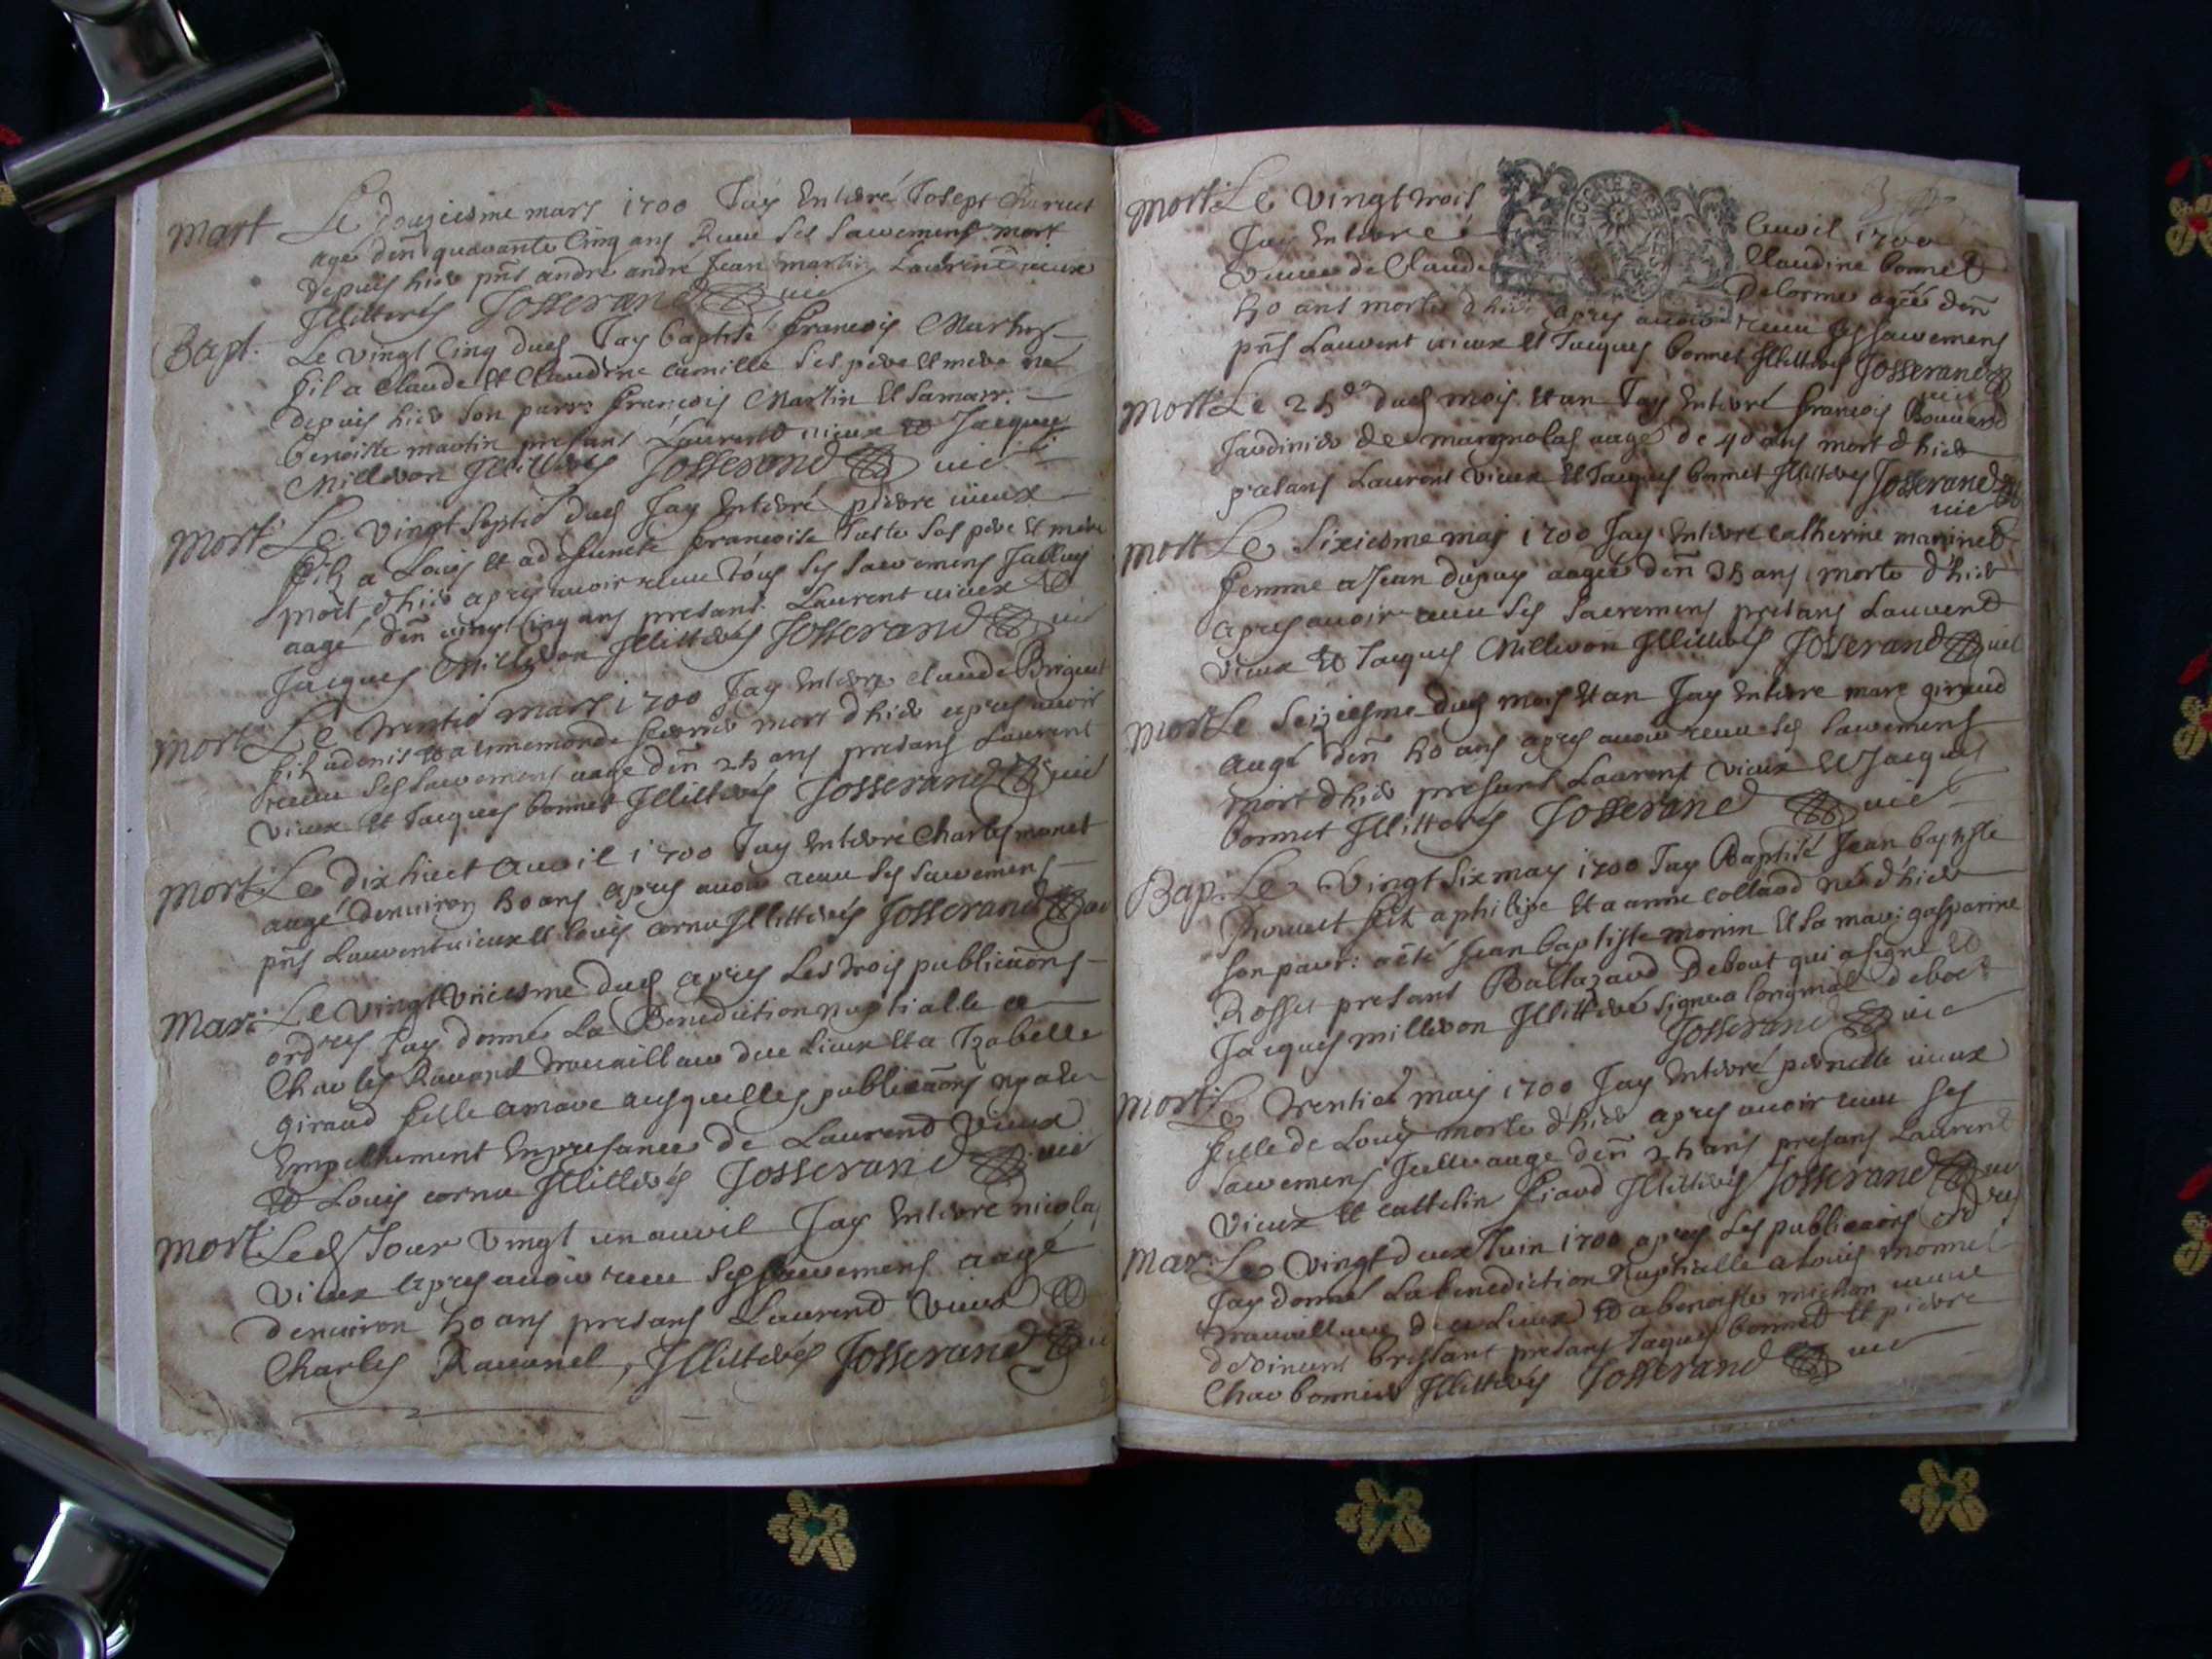 mort Le douziesme mars 1700 Jay Enterré Josept
agé d'en quarante Cinq ans Receu Ses Sacremens mort
depuis hier pnts andré andré Jean martin, Laurent vieux
Illiterés Josserand vic
Bapt. Le vingt Cinq dud Jay baptisé francois Martin
fil a Claude et Claudine camille Ses pere et mere né
depuis hier Son parr: francois Martin et Samarr:
benoiste martin presans Laurend vieux et Jacques
Milleron Illiterés Josserand vic
Mort Le vingt Septie dud Jay Enterré pierre vieux
filz a Louis et a defuncte francoise Ses pere et mere
mort d'hier apres avoir receu tous Ses Sacremens
aagé d'en vingt Cinq ans presans Laurent vieux et
Jacques Milleron Illiterés Josserand vic
mort Le trentie mars 1700 Jay Enterre claude Briguet
filz a denis et a annemonde mort d'hier apres avoir
receu Ses Sacremens aagé d'en 25 ans presans Laurent
vieux et Jacques bonnet Illiterés Josserand vic
mort Le dixhuict avril 1700 Jay Enterré Charles monet
aagé denviron 50 ans apres avoir receu Ses Sacremens
pnts Laurent vieux et louis cornu Illiterés Josserand vic
Mar: Le vingt Vniesme dud apres Les trois publicaons
ord.res Jay donné La Benediction nuptialle a
Charles Ravanel travailleur du Lieux et a Izabelle
giraud fille a mare ausquelles publicaons ny a eu
Empechement En presance de Laurend Vieux
et Louis cornu Illiterés Josserand vic
mort Led Jour vingt un avril Jay Enterré nicolas
vieux apres avoir receu Ses Sacremens aagé
denviron 50 ans presans Laurend Vieux et
Charles Ravanel, Illiterés Josserand vic
mort Le vingt trois avril 1700
Jay Enterreé Claudine bonnet
veuve de Claude Delorme agée d'en
50 ans morte d'hier apres avoir receu Ses Sacremens
pnts Laurent vieux et Jacques bonnet Illiterés Josserand
vic
mort Le 25e dud mois et an Jay Enterré francois Bouvard
Jardinier de margnolas aagé de 40 ans mort d'hier
presans Laurent Vieux et Jacques bonnet Illiterés Josserand
vic
mort Le Sixiesme may 1700 Jay Enterre catherine
femme a Jean dupuy aagée d'en 35 ans morte d'hier
apres avoir receu Ses Sacremens presans Laurent
Vieux et Jacques Milleron Illiterés Josserand vic
mort Le Seiziesme dud mois et an Jay Enterre mare giraud
aagé d'en 50 ans apres avoir receu Ses Sacremens
mort d'hier presans Laurent Vieux et Jacques
bonnet Illiterés Josserand vic
Bap. Le Vingt Six may 1700 Jay Baptisé Jean baptiste
filz a philipe et a anne colland né d'hier
Son parr: a été Jean baptiste monin et Sa marr: gasparine
Rosset presans Baltazard Debout qui a signé et
Jacques milleron Illiteré signé a loriginal debout
Josserand vic
mort Le trentie may 1700 Jay Enterré pernette vieux
fille de Louis morte d'hier apres avoir receu Ses
Sacremens Jcelle aagé d'en 25 ans presans Laurent
Vieux et cattelin Illiterés Josserand vic
Mar: Le Vingt deux Juin 1700 apres Les publicaons ord.res
Jay donné La benediction Nuptialle a Louis monnet
travailleur du Lieux et a benoiste michon veuve
de vincent brissant presans Jaques bonnet et pierre
Charbonnier Illiterés Josserand vic